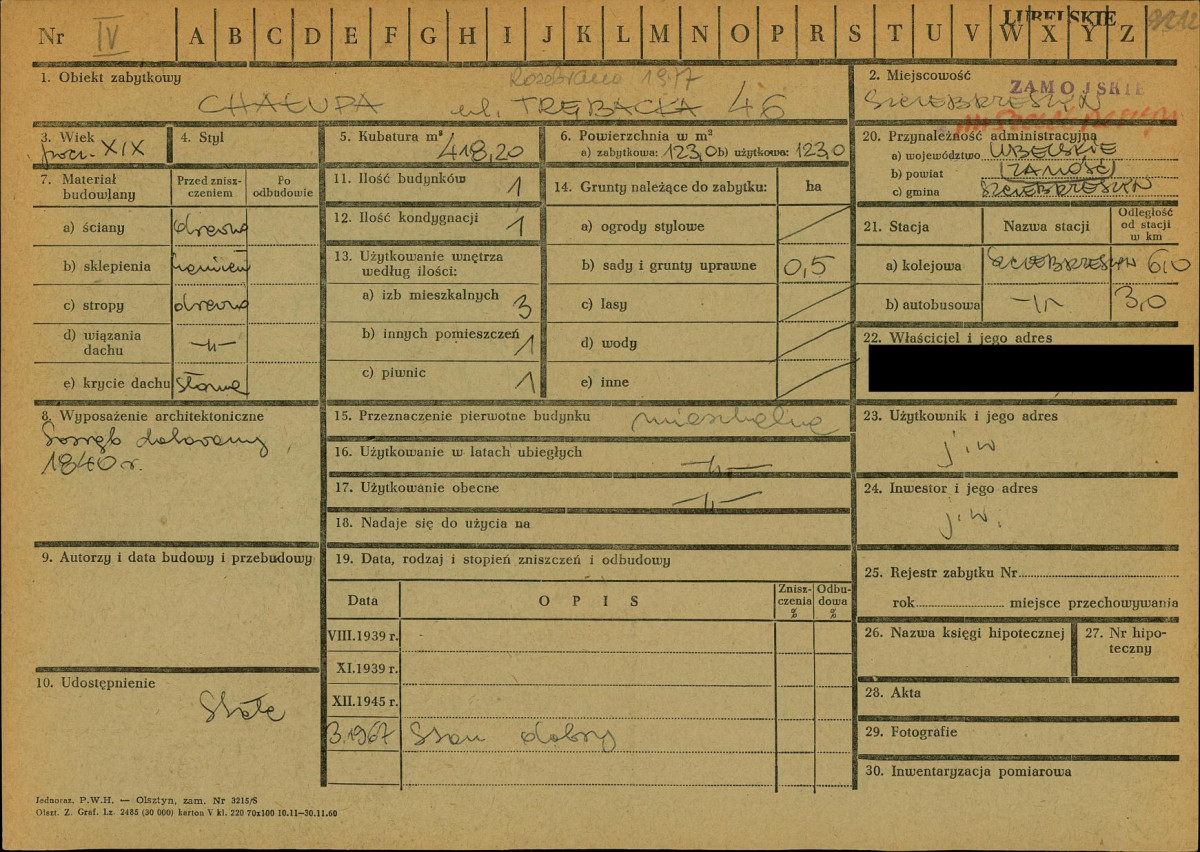 Nr IV A B C D E F G H I J K L M N O P R S T U V W X Y Z
LUBELSKIE
1. Obiekt zabytkowy
Rozebrano 1977
CHAŁUPA ul. TRĘBACKA 46
2. Miejscowość
ZAMOJSKIE
SZCZEBRZESZYN
3. Wiek
pocz. XIX
4. Styl
5. Kubatura m³
418,20
6. Powierzchnia w m²
a) zabytkowa: 123,0 b) użytkowa: 123,0
7. Materiał budowlany
Przed zniszczeniem
Po odbudowie
a) ściany drewno
b) sklepienia kamień
c) stropy drewno
d) wiązania dachu -„-
e) krycie dachu słoma
8. Wyposażenie architektoniczne
Sosręb datowany
1840 r.
9. Autorzy i data budowy i przebudowy
10. Udostępnienie
Stałe
11. Ilość budynków 1
12. Ilość kondygnacji 1
13. Użytkowanie wnętrza według ilości:
a) izb mieszkalnych 3
b) innych pomieszczeń 1
c) piwnic 1
14. Grunty należące do zabytku: ha
a) ogrody stylowe
b) sady i grunty uprawne 0,5
c) lasy
d) wody
e) inne
15. Przeznaczenie pierwotne budynku mieszkalne
16. Użytkowanie w latach ubiegłych -„-
17. Użytkowanie obecne -„-
18. Nadaje się do użycia na
19. Data, rodzaj i stopień zniszczeń i odbudowy
Data OPIS Zniszczenia % Odbudowa %
VIII.1939 r. -
XI.1939 r.
XII.1945 r.
3.1967 Stan dobry
20. Przynależność administracyjna
a) województwo LUBELSKIE
b) powiat ZAMOŚĆ
c) gmina SZCZEBRZESZYN
21. Stacja Nazwa stacji Odległość od stacji w km
a) kolejowa SZCZEBRZESZYN 6,0
b) autobusowa -„- 3,0
22. Właściciel i jego adres
23. Użytkownik i jego adres
j.w
24. Inwestor i jego adres
j.w.
25. Rejestr zabytku Nr
rok miejsce przechowywania
26. Nazwa księgi hipotecznej
27. Nr hipoteczny
28. Akta
29. Fotografie
30. Inwentaryzacja pomiarowa
Jednoraz. P.W.H. — Olsztyn, zam. Nr 3215/S
Olszt. Z. Graf. Lz. 2485 (30 000) karton V kl. 220 70x100 10.11—30.11.60